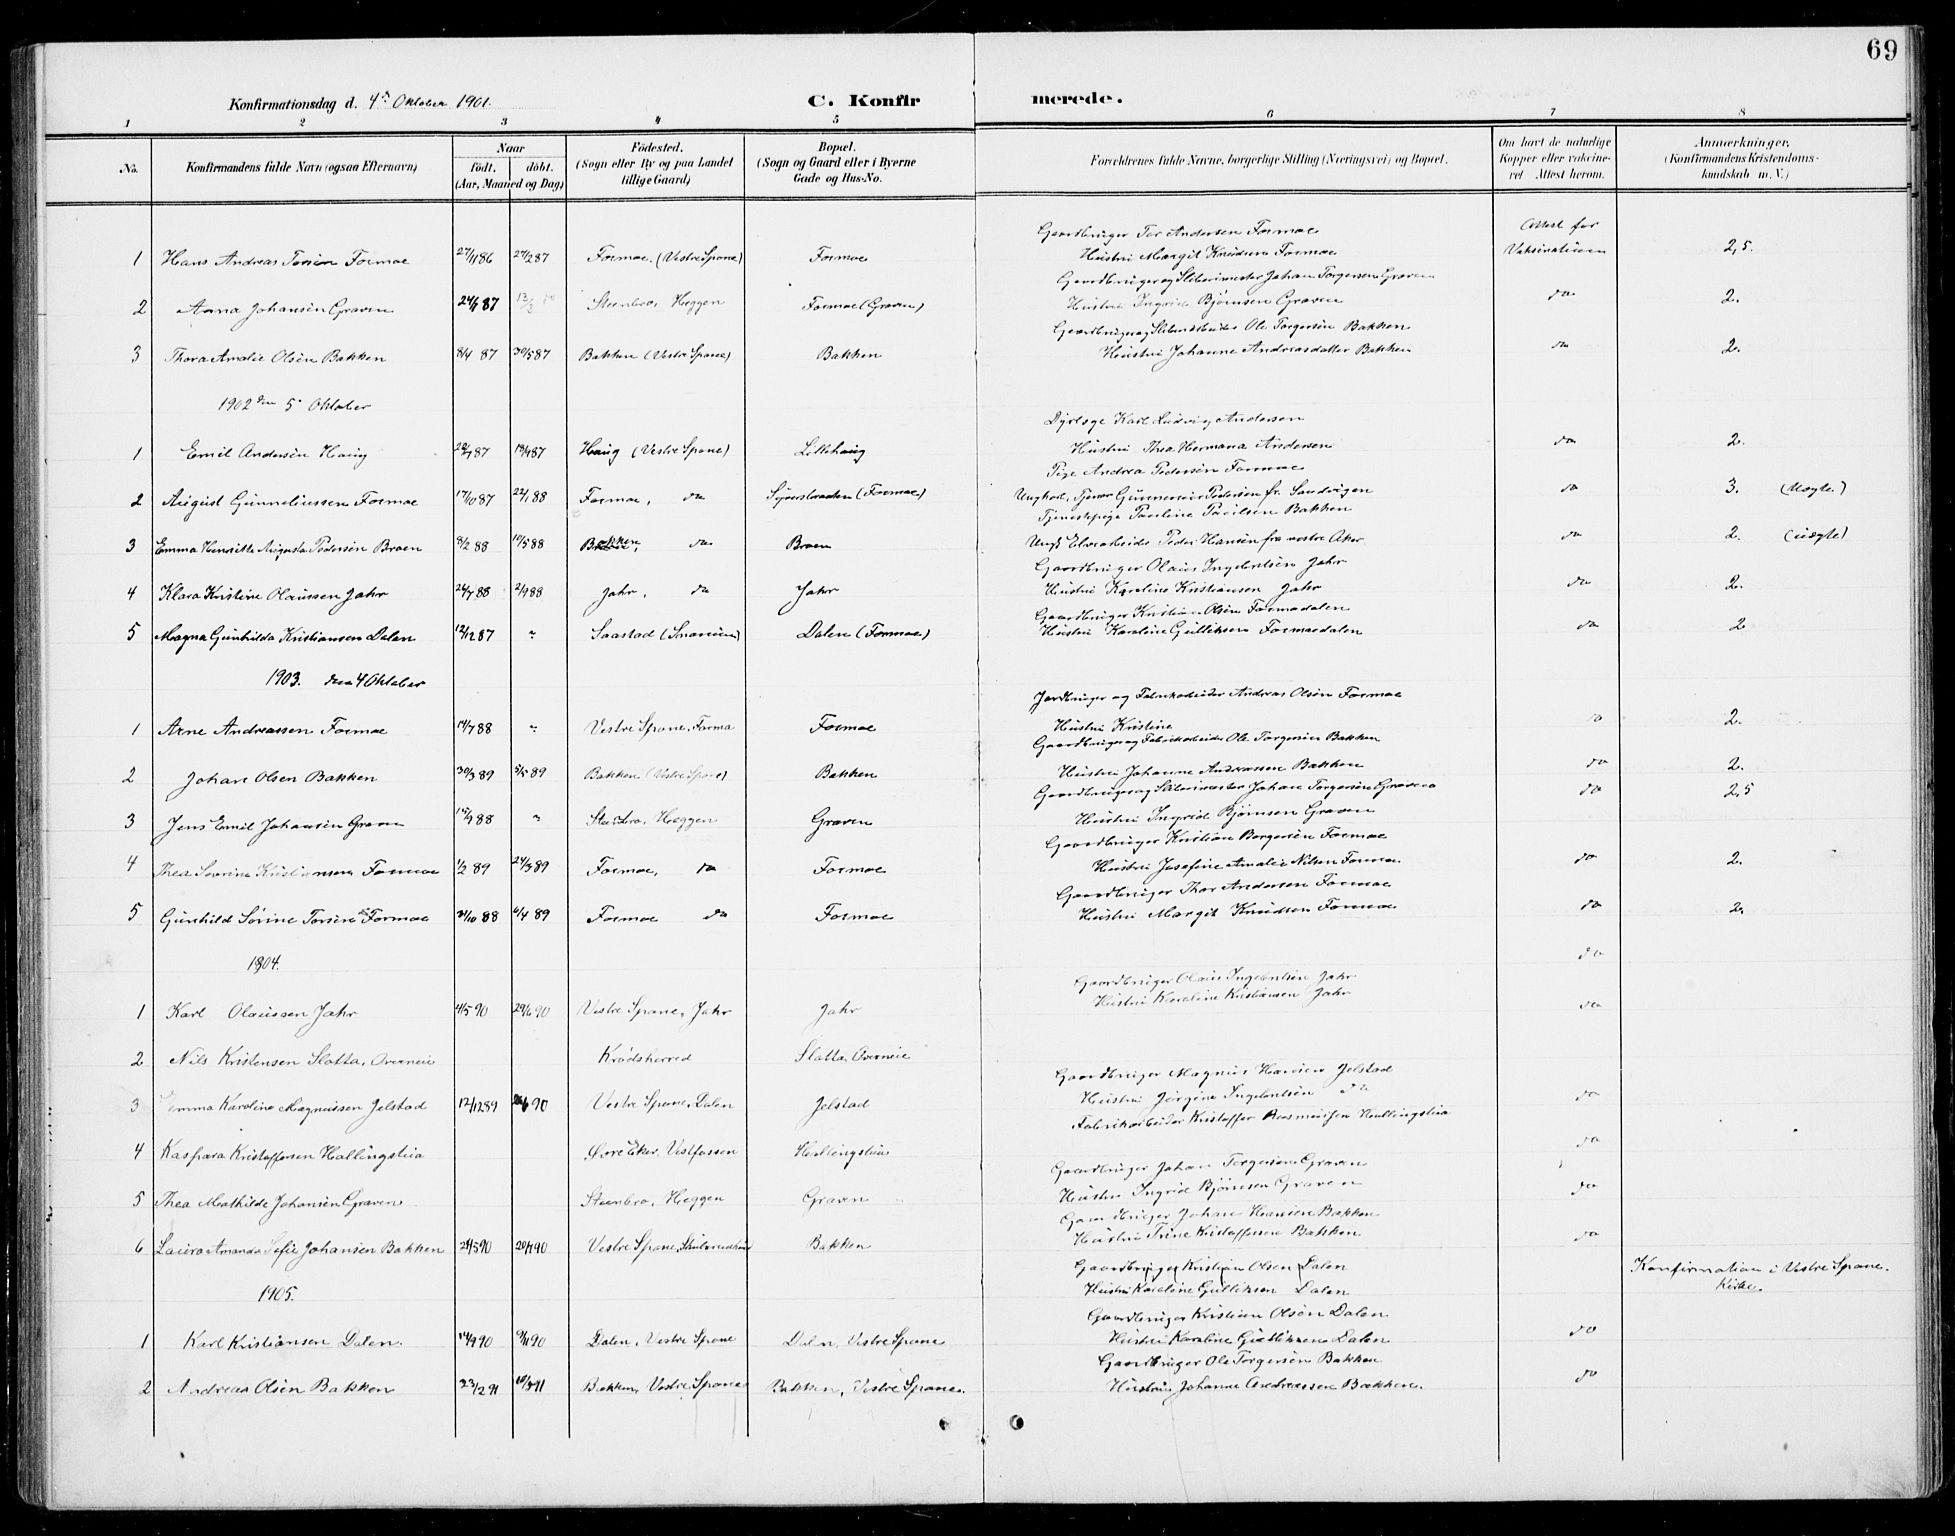 69
Konfirmationsdag d. 4de Oktober 1901.
C. Konfirmerede.
1 2 3 4 5 6 7 8
No. Konfirmandens fulde Navn (ogsaa Efternavn) Naar født. døbt. (Aar, Maaned og Dag) Fødested. (Sogn eller By og paa Landet tillige Gaard) Bopæl. (Sogn og Gaard eller i Byerne Gade og Hus-No. Forældrenes fulde Navne, borgerlige Stilling (Næringsvei) og Bopæl. Om havt de naturlige Kopper eller vakcineret Attest herom. Anmærkninger. (Konfirmandens Kristendomskundskab m. V.)
Gaardbruger Tor Andersen Formoe Attest for
1 Hans Andreas Torsen Formoe 86 87 Formoe. (Vestre Spone) Formoe Hustru Margit Knudsen Formoe Vaksination 2,5.
Gaardbruger og Slibemester Johan Torgersen Graven
2 Anna Johansen Graven 87 Steenbro, Heggen Formoe (Graven) Hustru Ingrid Bjørnsen Graven do 2.
Gaardbruger og Ole Torgersen Bakken
3 Thora Amalie Olsen Bakken 8/4 87 30/5 87 Bakken (Vestre Spone) Bakken Hustru Johanne Andreasdatter Bakken do 2.
1902 den 5 Oktober
Karl Ludvig Andersen
1 Emil Andersen Haug 87 87 Haug (Vestre Spone) Lillehaug Hustru Thea Hermana Andersen do 2.
Pige Andrea Pedersen Formoe
2 August Gunneliussen Formoe 17/10 87 22/1 88 Formoe, do (Formoe) Ungkarl, Tjener Pedersen fr. Sandvigen do 3. (Uægte)
Tjenestepige Pauline Paulsen Bakken
3 Emma Henriette Augusta Pedersen Braen 8/2 88 10/5 88 Bakken, do Braen Peder Hansen fra vestre Aker do 2. (uægte)
Gaardbruger Olaus Ingebretsen Jahr
4 Klara Kristine Olaussen Jahr 24/7 88 2/9 88 Jahr, do Jahr Hustru Karoline Kristiansen Jahr do 2.
Gaardbruger Kristian Olsen Formoedalen
5 Magna Gunhilda Kristiansen Dalen 12/12 87 " Saastad Dalen (Formoe) Hustru Karoline Gulliksen Formoedalen do 2
1903. den 4 Oktober
Jordbruger og Fabrikarbeider Andreas Olsen Formoe
1 Arne Andreassen Formoe 14/7 88 " Vestre Spone, Formo Formoe Hustru Kristine do 2.
Gaardbruger og Fabrikarbeider Ole Torgersen Bakken
2 Johan Olsen Bakken 30/3 89 5/5 89 Bakken (Vestre Spone) Bakken Hustru Johanne Andreassen Bakken do 2.
Gaardbruger og Slibemester Johan Torgersen Graven do 2,5
3 Jens Emil Johansen Graven 15/9 88 " Steenbro, Heggen Graven Hustru Ingrid Bjørnsen Graven
Gaardbruger Kristian Borgersen Formoe
4 Thea Severine Kristiansen Formoe 1/2 89 24/3 89 Formoe, do Formoe Hustru Josefine Amalie Nilsen Formoe do 2.
Gaardbruger Thor Andersen Formoe
5 Gunhild Sørine Torsen Formoe 31/10 88 6/4 89 Formoe do Formoe Hustru Margit Knudsen Formoe do 2.
1904. do
Gaardbruger Olaus Ingebretsen Jahr
1 Karl Olaussen Jahr 4/5 90 29/6 90 Vestre Spone, Jahr Jahr Hustru Karoline Kristiansen Jahr do
2 Nils Kristensen Slotta, Overneie Krødsherred Slotta, Overneie
Gaardbruger Magnus Hansen Jelstad
3 Emma Karoline Magnussen Jelstad 12/12 89 90 Vestre Spone, Dalen Jelstad Hustru Jørgine Ingebretsen do do
Fabrikarbeider Kristoffer Rasmussen Hallingstua
4 Kaspara Kristoffersen Hallingstua Øvre Eker, Vestfossen Hallingstua do
Gaardbruger Johan Torgersen Graven
5 Thea Mathilde Johansen Graven Steenbro, Heggen Graven Hustru Ingrid Bjørnsen Graven do
Gaardbruger Johan Hansen Bakken
6 Laura Amanda Sofie Johansen Bakken 90 90 Vestre Spone, Bakken Hustru Trine Kristoffersen Bakken do
1905. Gaardbruger Kristian Olsen Dalen Konfirmation i Vestre Spone Kirke.
Hustru Karoline Gulliksen Dalen
Gaardbruger Kristian Olsen Dalen
1 Karl Kristiansen Dalen. 14/9 90 90 Dalen, Vestre Spone Dalen, Vestre Spone Hustru Karoline Gulliksen Dalen do
Gaardbruger Ole Torgersen Bakken
2 Andreas Olsen Bakken 23/2 91 91 Bakken, Vestre Spone Bakken, Vestre Spone. Hustru Johanne Andreassen Bakken. do